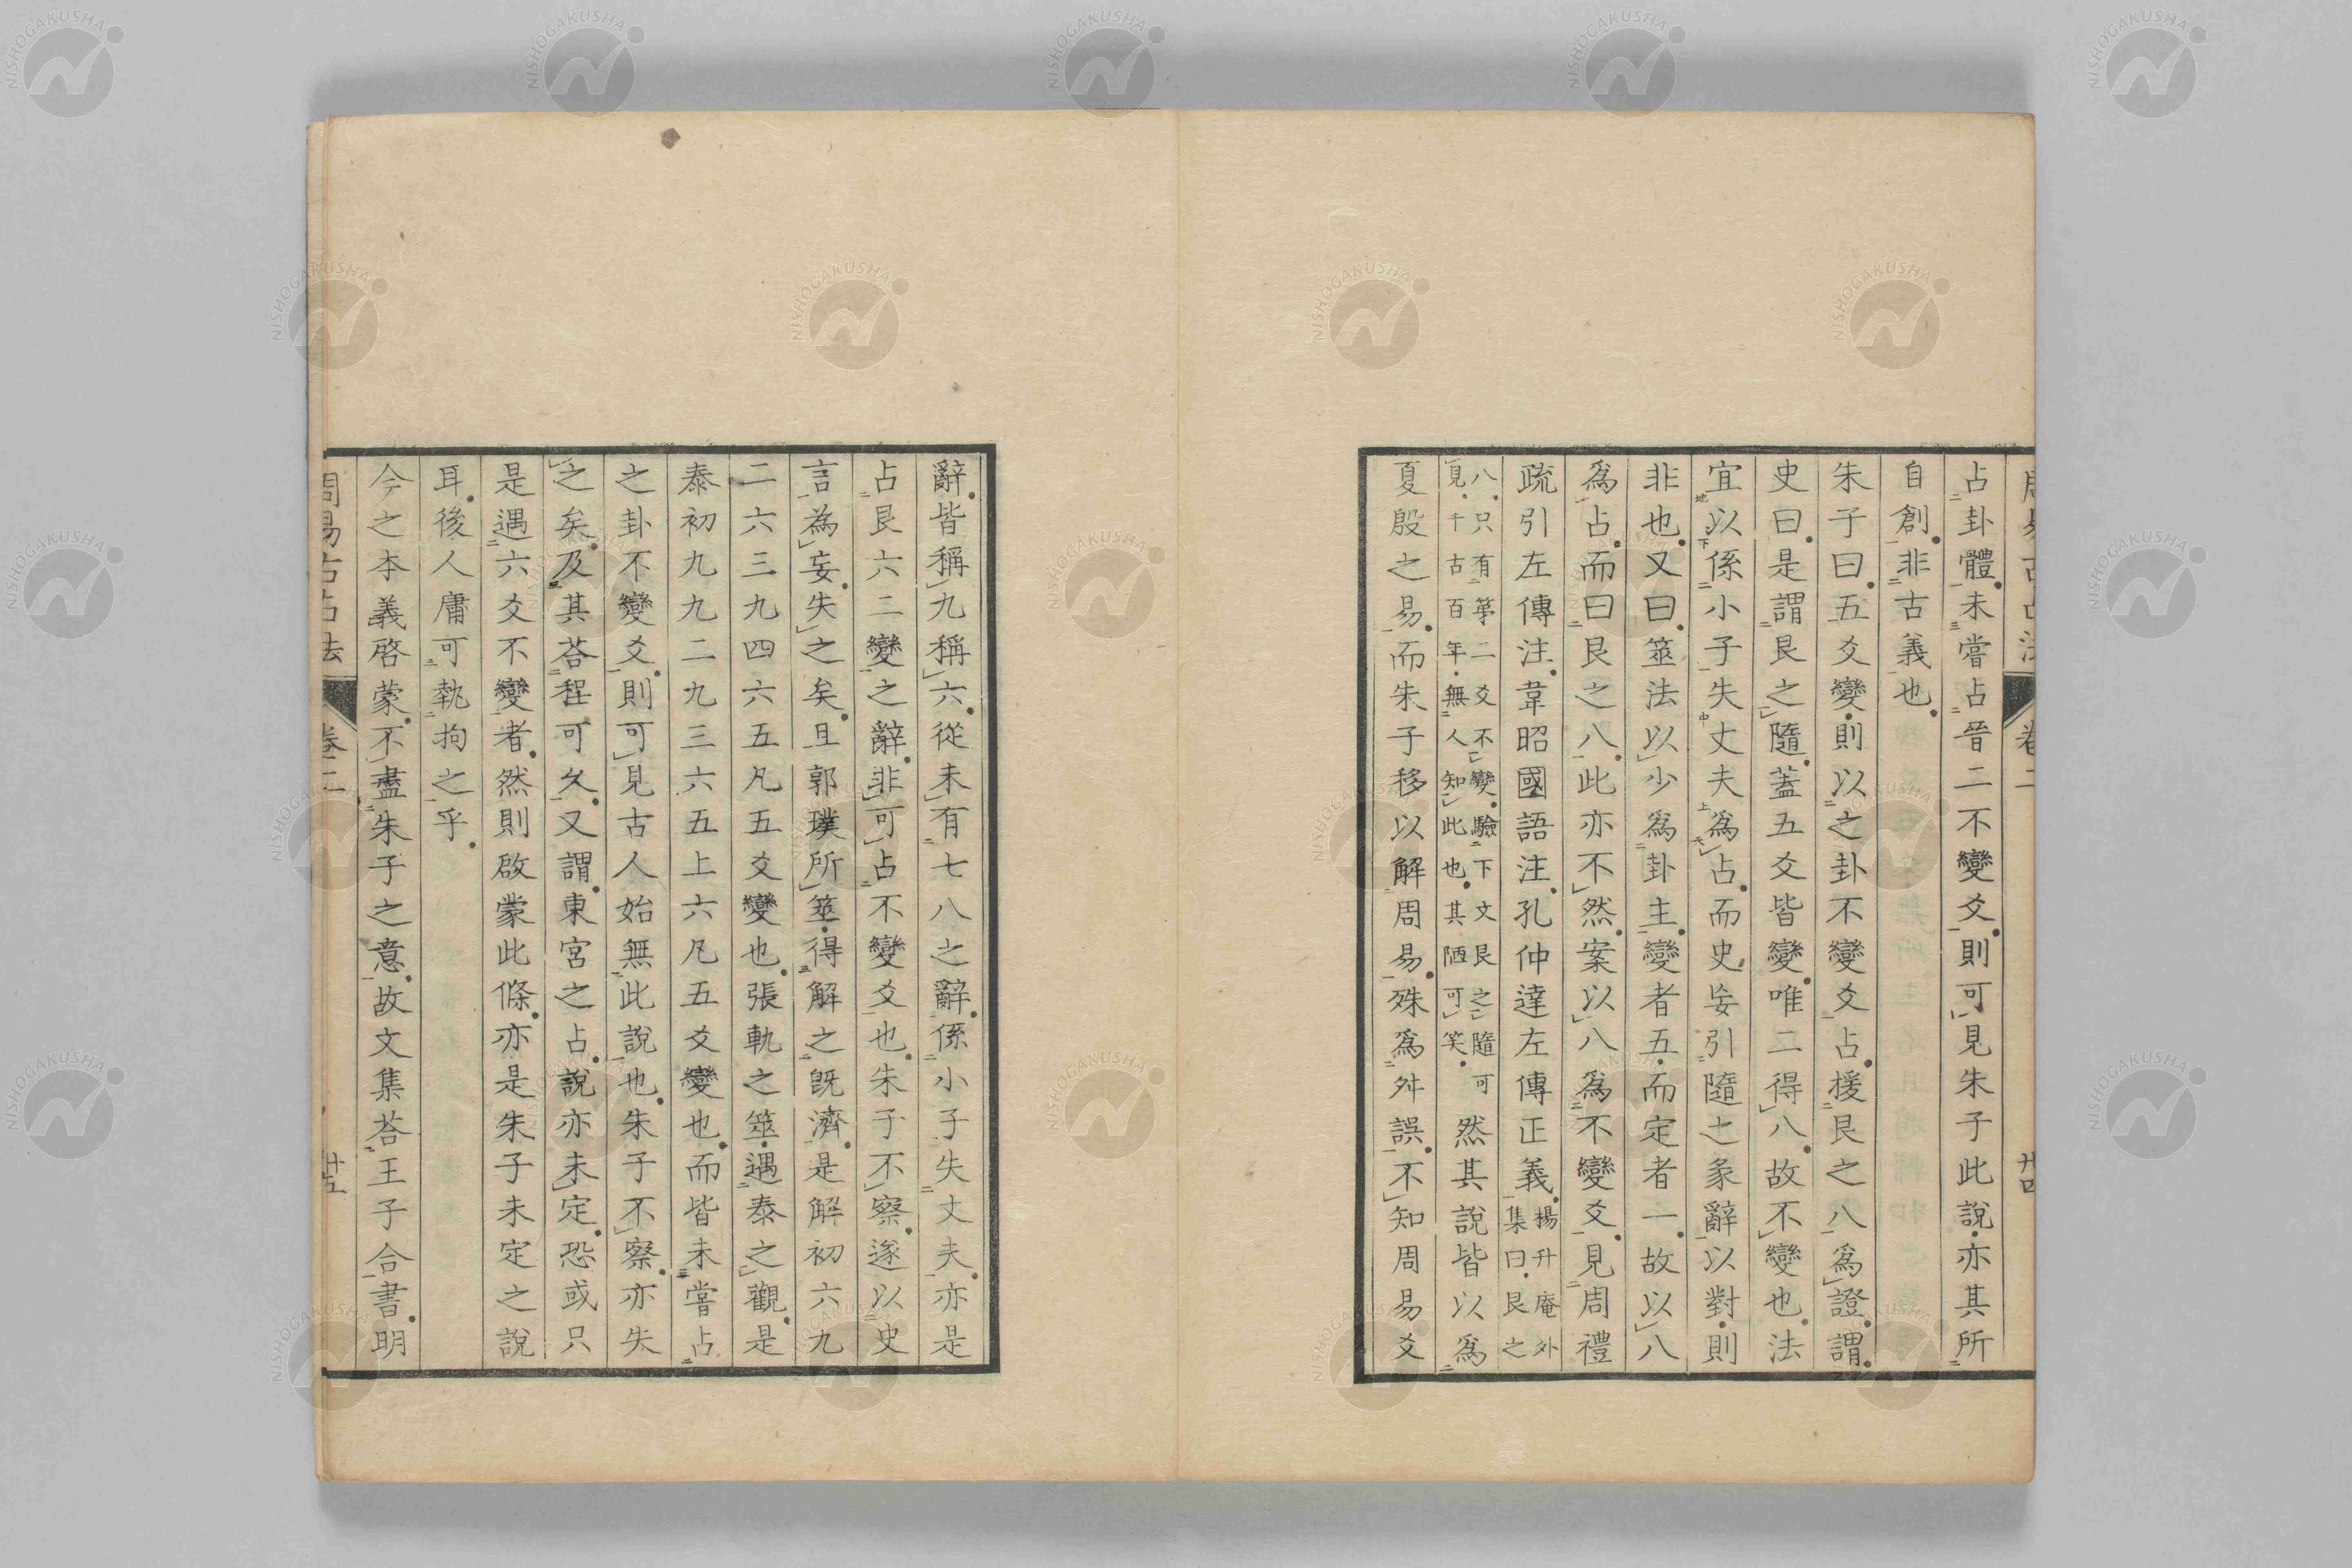 占卦體未嘗占晉二不變爻則可見朱子此說亦其所
自創非古義也
朱子曰五爻變則以之卦不變爻占援艮之八爲證謂
史曰是謂艮之隨蓋五爻皆變唯二得八故不變也法
宜以係小子失丈夫爲占而史妄引隨之彖辭以對則
非也又曰筮法以少爲卦主變者五而定者一故以八
爲占而曰艮之八此亦不然案以八爲不變爻見周禮
疏引左傳注韋昭國語注孔仲達左傳正義揚升庵外集曰艮之
八只有第二爻不變驗下文艮之隨可見千古百年無人知此也其陋可笑然其說皆以爲
夏殷之易而朱子移以解周易殊爲舛誤不知周易爻
辭皆稱九稱六從未有七八之辭係小子失丈夫亦是
占艮六二變之辭非可占不變爻也朱子不察遂以史
言為妄失之矣且郭璞所筮得解之既濟是解初六九
二六三九四六五凡五爻變也張軌之筮遇泰之觀是
泰初九九二九三六五上六凡五爻變也而皆未嘗占
之卦不變爻則可見古人始無此說也朱子不察亦失
之矣及其荅程可久又謂東宮之占說亦未定恐或只
是遇六爻不變者然則啟蒙此條亦是朱子未定之說
耳後人庸可執拘之乎
今之本義啓蒙不盡朱子之意故文集荅王子合書明
周易古占法
卷二
廿五
卷二
廿四
NISHOGAKUSHA